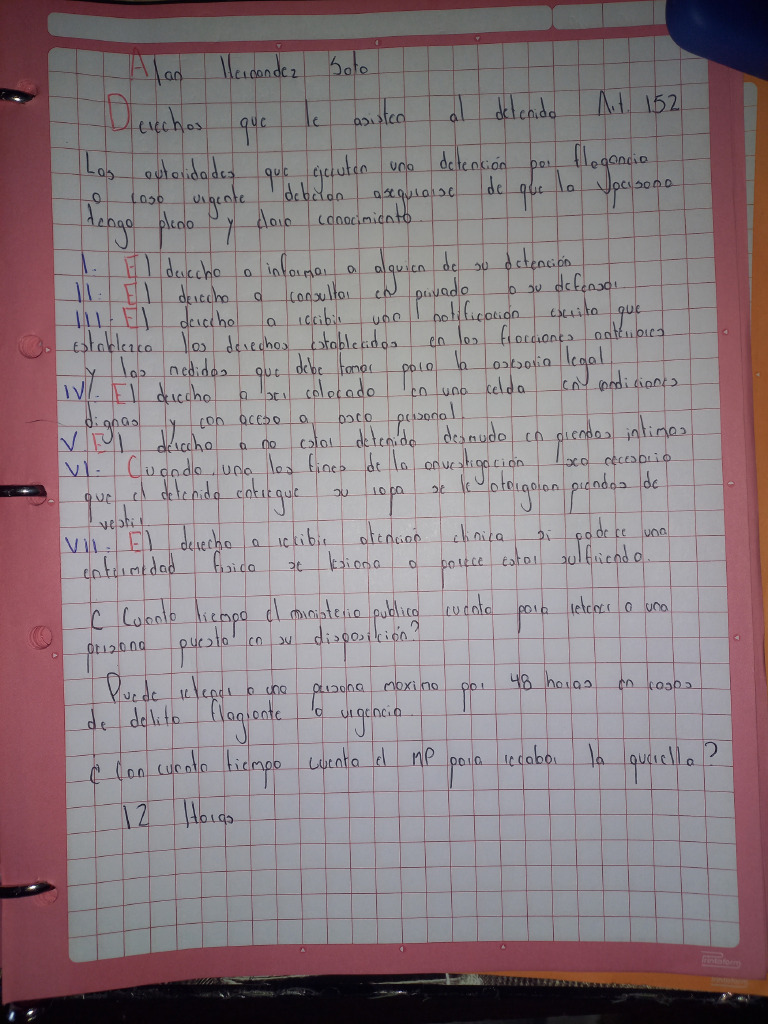 Alan Hernandez Soto
Derechos que le asisten al detenido Art. 152
Las autoridades que ejecuten una detención por flagancia
o caso urgente deberan asegurarse de que la persona
tenga pleno y claro conocimiento.
I. El derecho a informar a alguien de su detención
II. El derecho a consultar en privado a su defensor
III. El derecho a recibir una notificación escrita que
establezca los derechos establecidos en las fracciones anteriores
y las medidas que debe tomar para la asesoria legal
IV. El derecho a ser colocado en una celda en condiciones
dignas y con acceso a aseo personal.
V El derecho a no estar detenido desnudo en prendas intimas
VI. Cuando una los fines de la investigación sea necesario
que el detenido entregue su ropa se le otorgaran prendas de
vestir
VII. El derecho a recibir atención clinica si padece una
enfermedad fisica se lesiona o parece estar sulfriendo.
¿ Cuanto tiempo el ministerio publico cuenta para retener a una
prizona puesta en su disposición?
Puede retener a una persona maximo por 48 horas en casos
de delito flagrante o urgencia.
¿ Con cuanto tiempo cuenta el MP para recabar la querella?
12 Horas